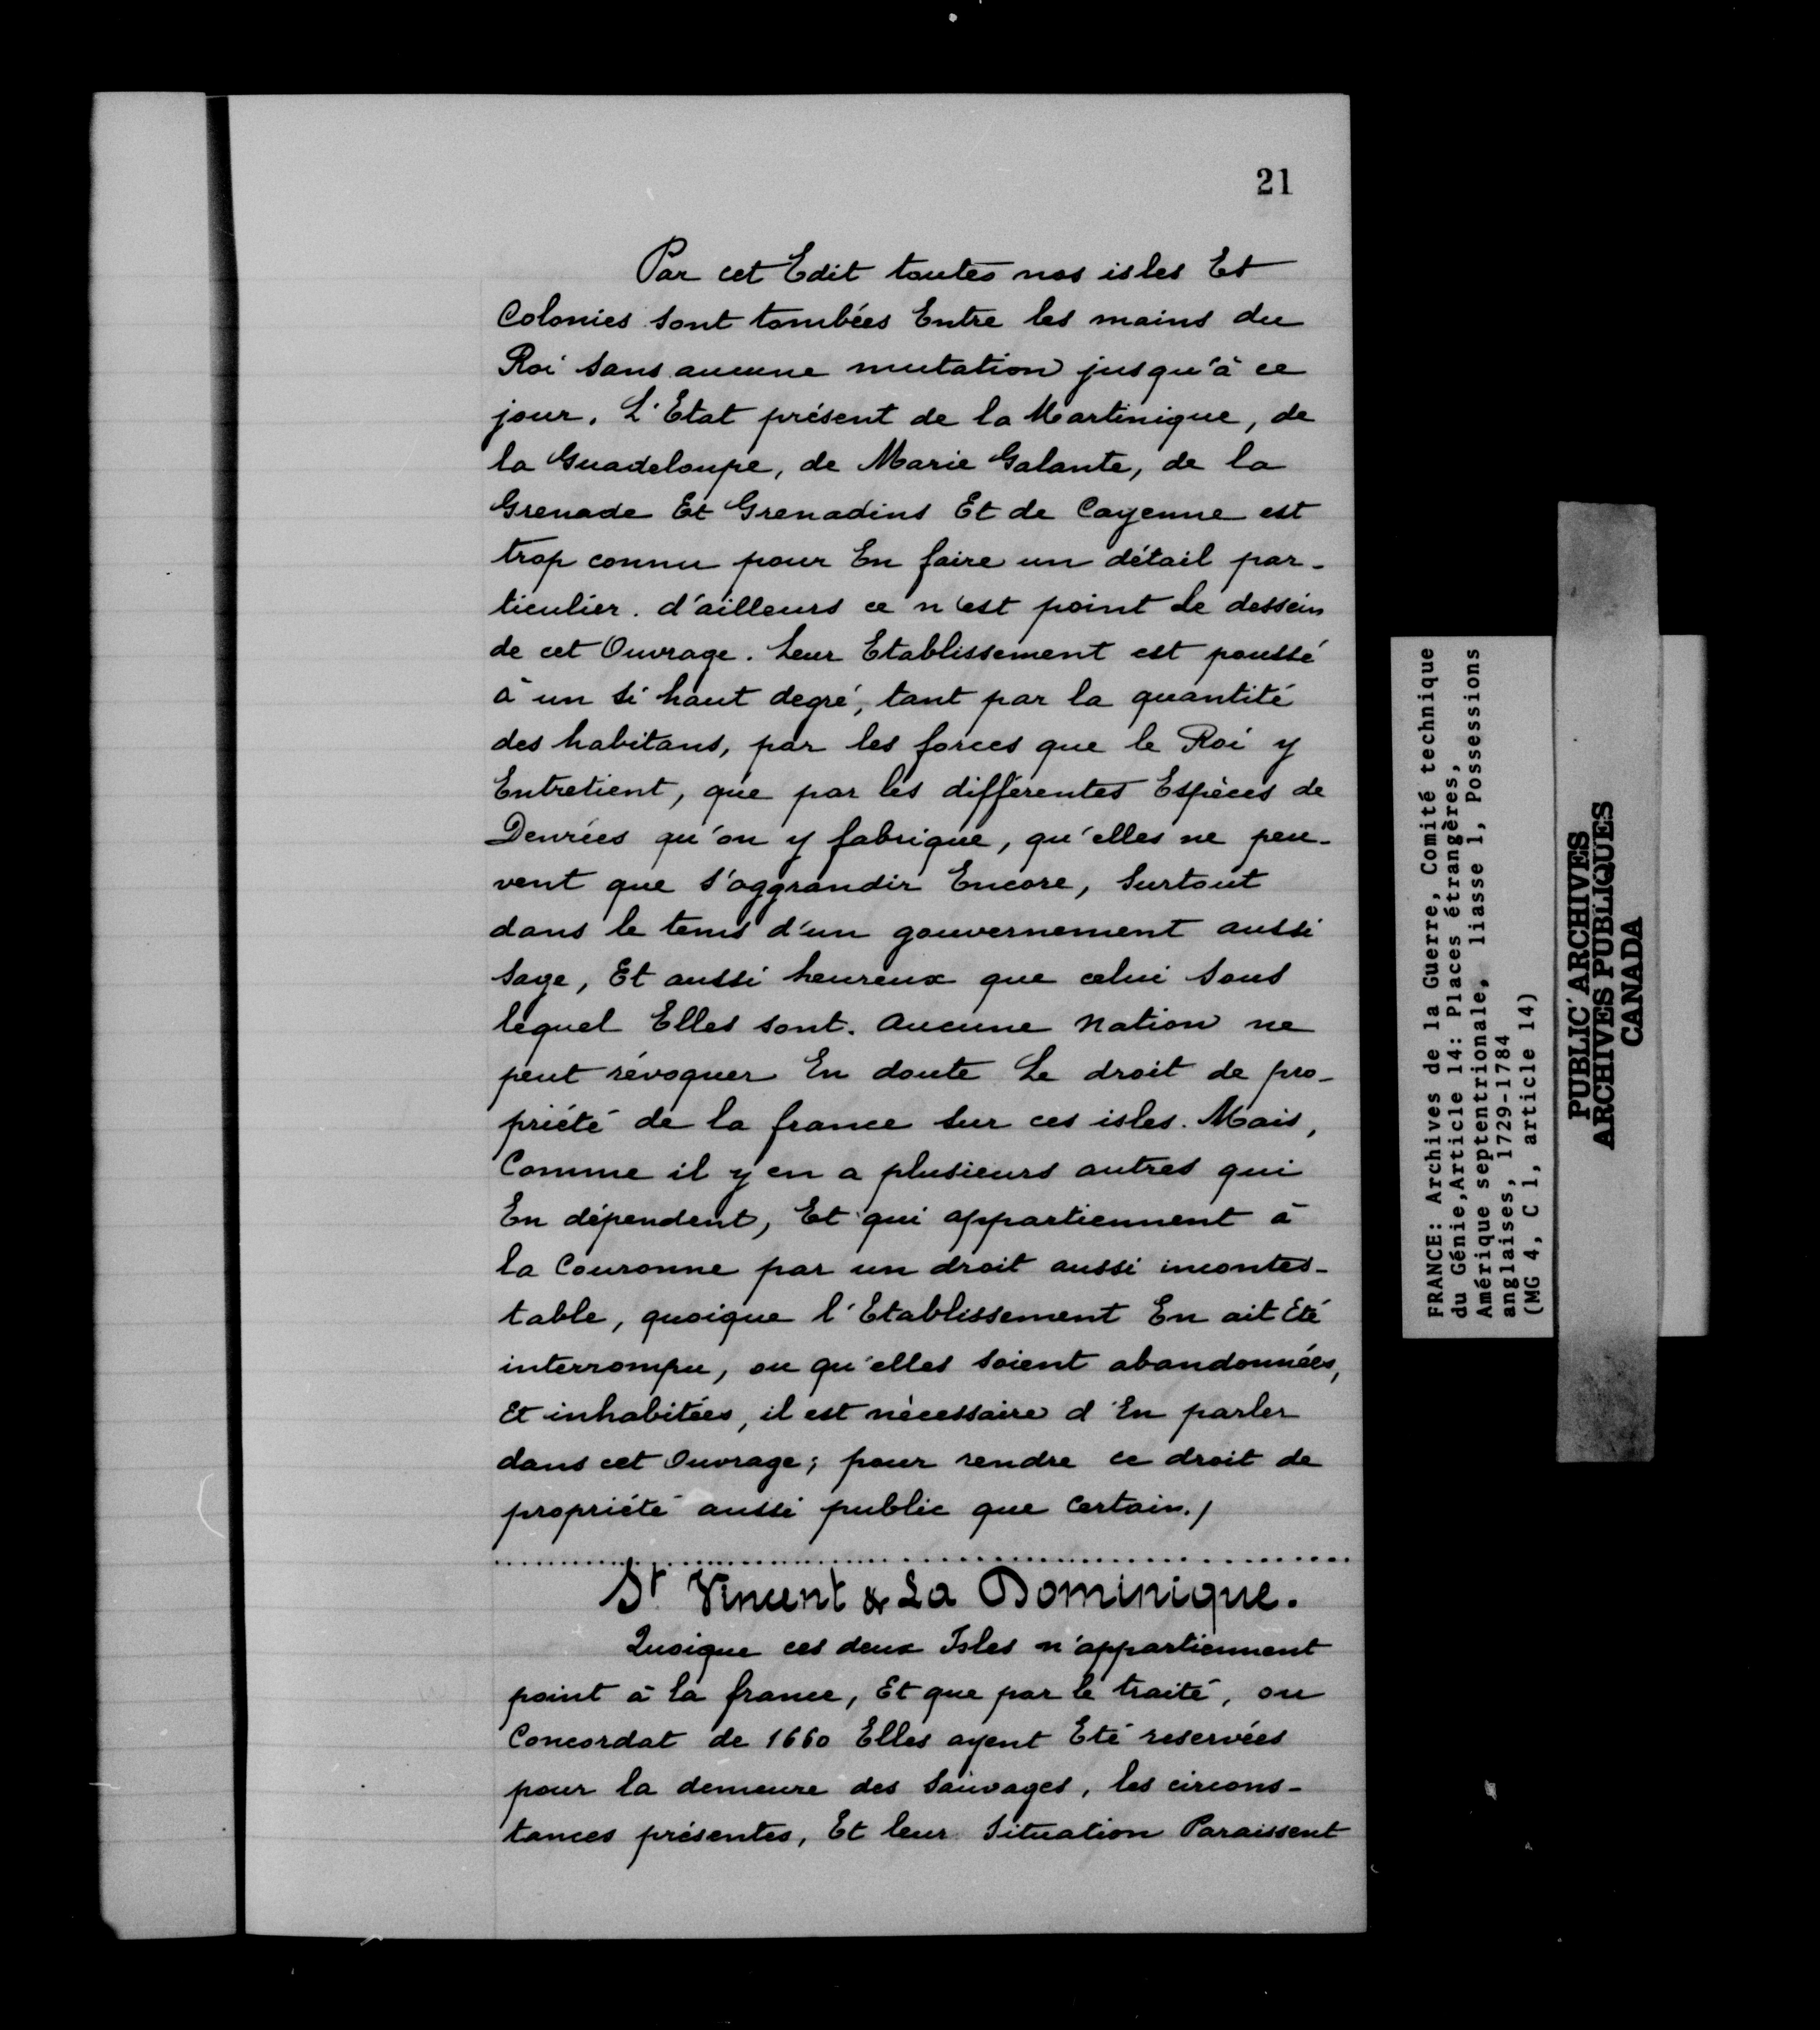 21
Par cet Edit toutes nos isles Et
Colonies sont tombées Entre les mains du
Roi sans aucune mutation jusqu'à ce
jour. L'Etat présent de la Martinique, de
la Guadeloupe, de Marie Galante, de la
Grenade Et Grenadins Et de Cayenne est
trop connu pour En faire un détail par-
ticulier. d'ailleurs ce n'est point le dessein
de cet Ouvrage. Leur Etablissement est poussé
à un si haut degré, tant par la quantité
des habitans, par les forces que le Roi y
Entretient, que par les différentes Espèces de
Denrées qu'on y fabrique, qu'elles ne peu-
vent que s'aggrandir Encore, Surtout
dans le tems d'un gouvernement aussi
sage, Et aussi heureux que celui sous
lequel Elles sont. Aucune Nation ne
peut révoquer En doute Le droit de pro-
priété de la france sur ces isles. Mais,
Comme il y en a plusieurs autres qui
En dépendent, Et qui appartiennent à
la Couronne par un droit aussi incontes-
table, quoique l'Etablissement En ait Eté
interrompu, ou qu'elles soient abandonnées,
Et inhabitées, il est nécessaire d'En parler
dans cet Ouvrage; pour rendre ce droit de
propriété aussi public que Certain./
St Vincent & La Dominique.
Quoique ces deux Isles n'appartiennent
point à la france, Et que par le traité, ou
Concordat de 1660 Elles ayent Eté reservées
pour la demeure des Sauvages, les circons-
tances présentes, Et leur Situation Paraissent
FRANCE: Archives de la Guerre, Comité technique
du Génie,Article 14: Places étrangères,
Amérique septentrionale, liasse 1, Possessions
anglaises, 1729-1784
(MG 4, C 1, article 14)
PUBLIC ARCHIVES
ARCHIVES PUBLIQUES
CANADA